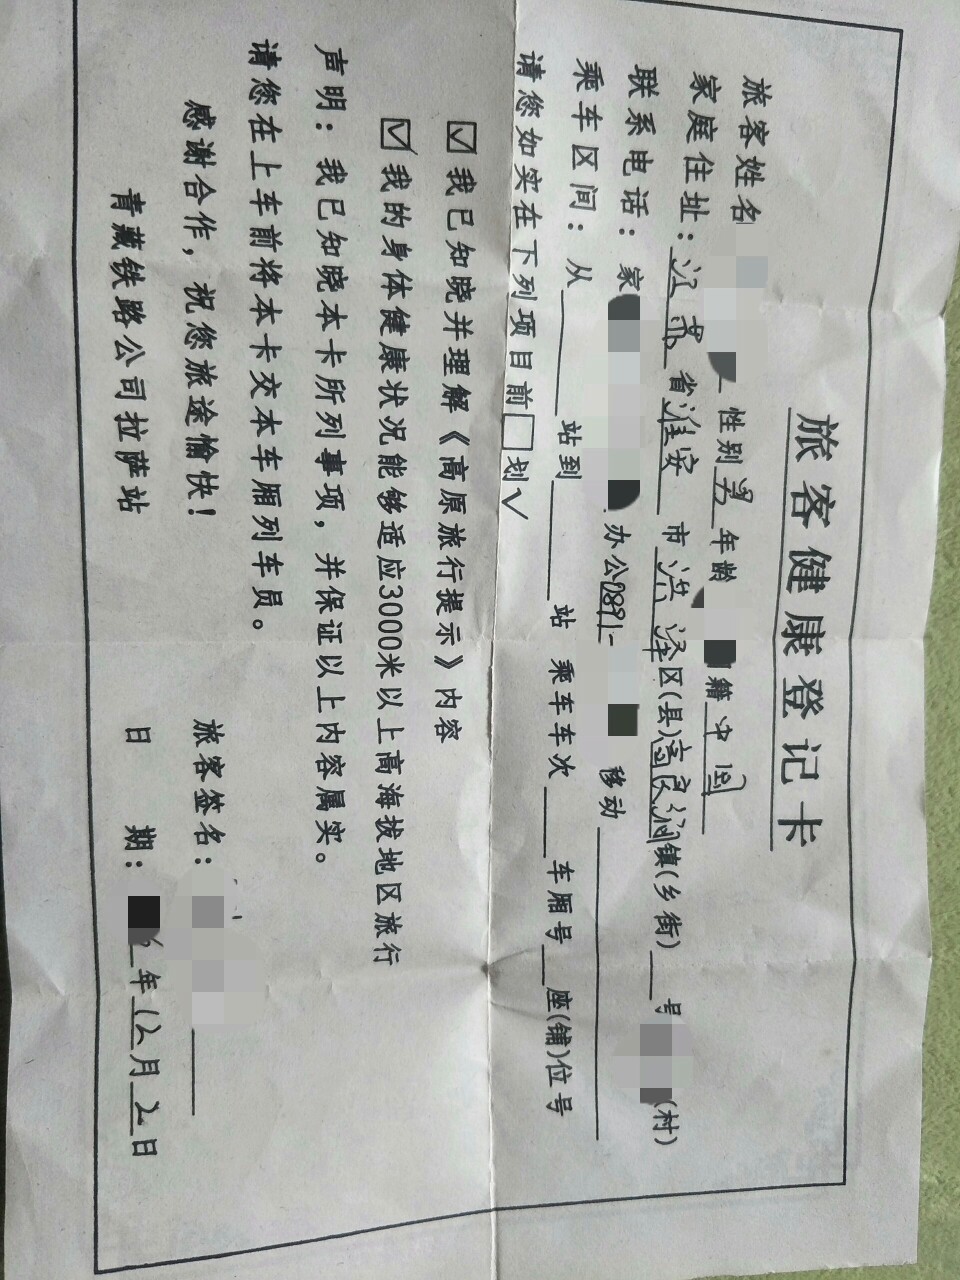 旅客健康登记卡
旅客姓名 性别男年龄 籍中国
家庭住址：江苏省淮安市洪泽区(县)高良涧镇(乡街) 号 (村)
联系电话：家 办公0891- 移动
乘车区间：从 站到 站 乘车车次 车厢号 座(铺)位号
请您如实在下列项目前□划√
☑我已知晓并理解《高原旅行提示》内容
☑我的身体健康状况能够适应3000米以上高海拔地区旅行
声明：我已知晓本卡所列事项，并保证以上内容属实。
请您在上车前将本卡交本车厢列车员。
感谢合作，祝您旅途愉快！
旅客签名：
青藏铁路公司拉萨站
日 期： 年12月2日